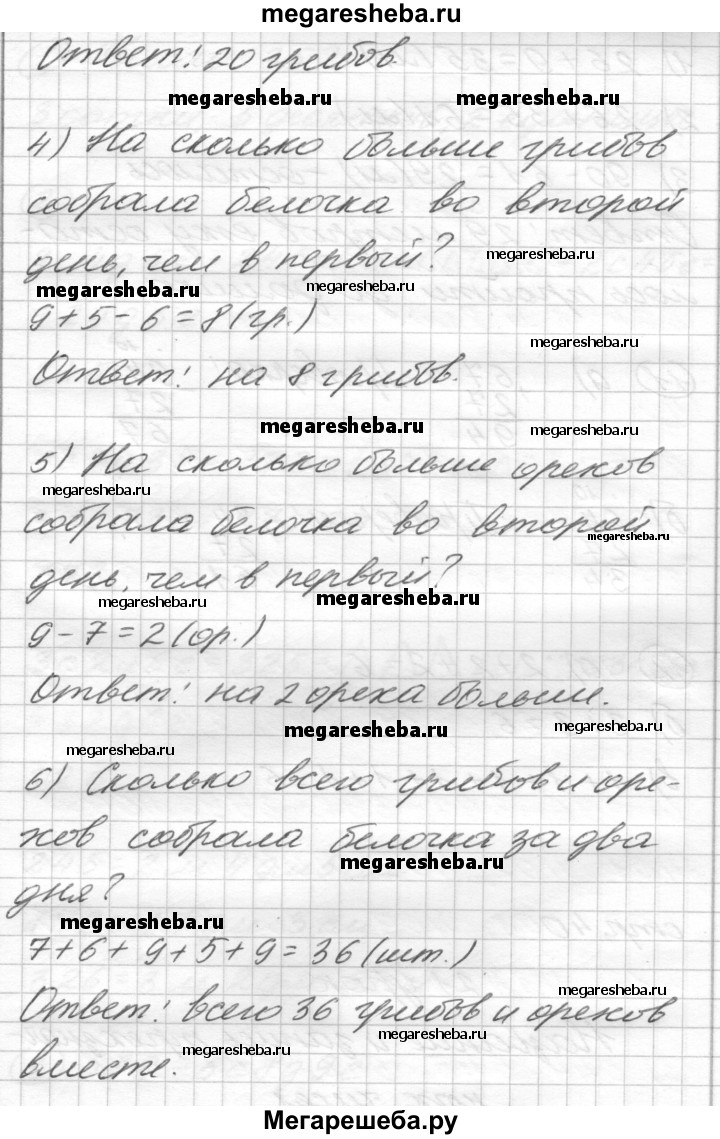 megaresheba.ru
Ответ: 20 грибов.
megaresheba.ru megaresheba.ru
4) На сколько больше грибов
собрала белочка во второй
день, чем в первый?
megaresheba.ru
megaresheba.ru megaresheba.ru
9+5-6=8(гр.)
megaresheba.ru
Ответ: на 8 грибов.
megaresheba.ru
5) На сколько больше орехов
megaresheba.ru
собрала белочка во второй
megaresheba.ru
день, чем в первый?
megaresheba.ru megaresheba.ru
9-7=2(ор.)
Ответ: на 2 ореха больше.
megaresheba.ru megaresheba.ru
megaresheba.ru
6) Сколько всего грибов и оре-
хов собрала белочка за два
megaresheba.ru
дня?
megaresheba.ru
7+6+9+5+9=36(шт.)
megaresheba.ru
Ответ: всего 36 грибов и орехов
megaresheba.ru
вместе.
megaresheba.ru
megaresheba.ru
Мегарешеба.ру